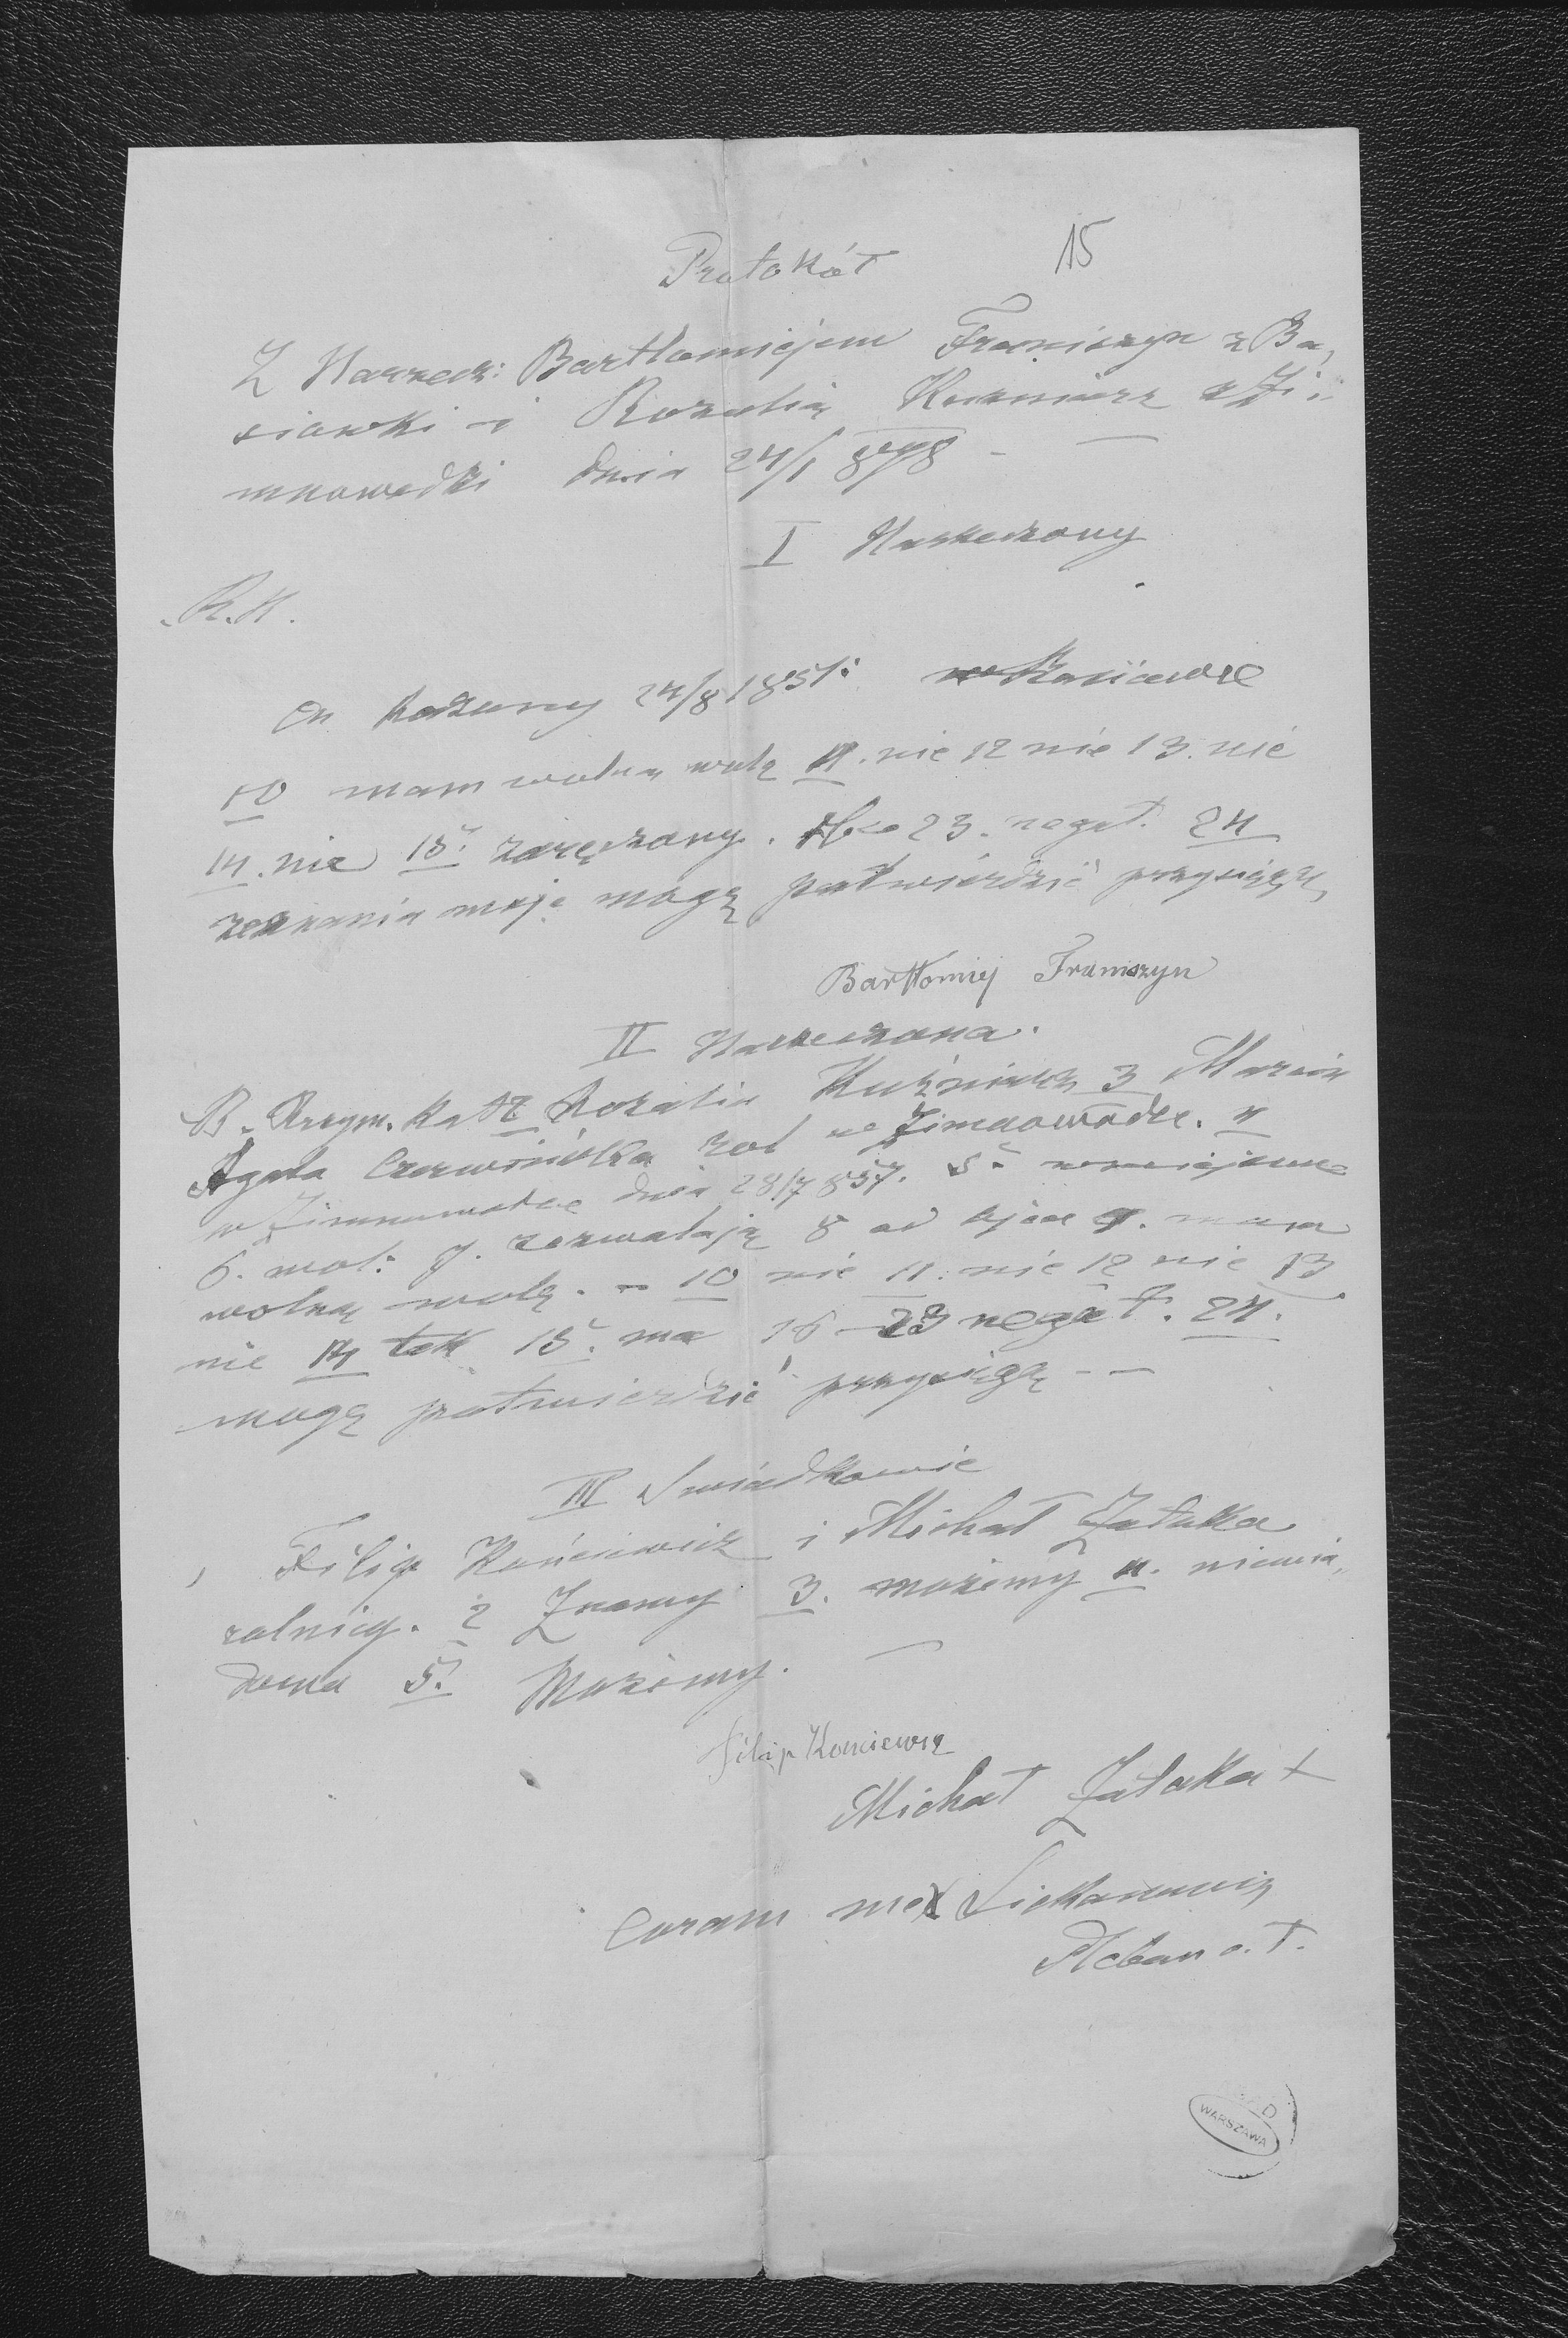 15
Protokół
Z Narzecz: Bartłomiejem Franiszyn z Ba„
siówki i Rozalią Kuzniarz z Zi„
mnowodki dnia 24/1 878 -
I Narzeczony
R.K.
On Rodzony 24/8 1851: w Basiówce
10 mam wolną wolę 11. nie 12 nie 13. nie
14. nie 15. zaręczony. 16 do 23. negat. 24
zeznania moje mogę potwierdzić przysięgą
Bartłomiej Franiszyn
II Narzeczona.
R. Rzym. Kat 2 Rozalia Kuźniarz 3 Marcin
Agata Czerwińska rol w Zimnowodce. 4
w Zimnowodce dnia 28/7 857. 5.
6. mał: 7. zezwalają 8 od ojca 9. mam
wolną wolę. - 10 nie 11. nie 12 nie 13
nie 14 tak 15. ma 16 - 23 negat. 24.
mogę potwierdzić przysięgą - -
III Swiadkowie
Filip Kończewicz i Michał Załuka
rolnicy. 2 Znamy 3. możemy 4. niewia„
doma 5. Możemy.
Filip Konciewicz
Michał Załuka +
Coram me X
Pleban o. T.
AGAD
WARSZAWA